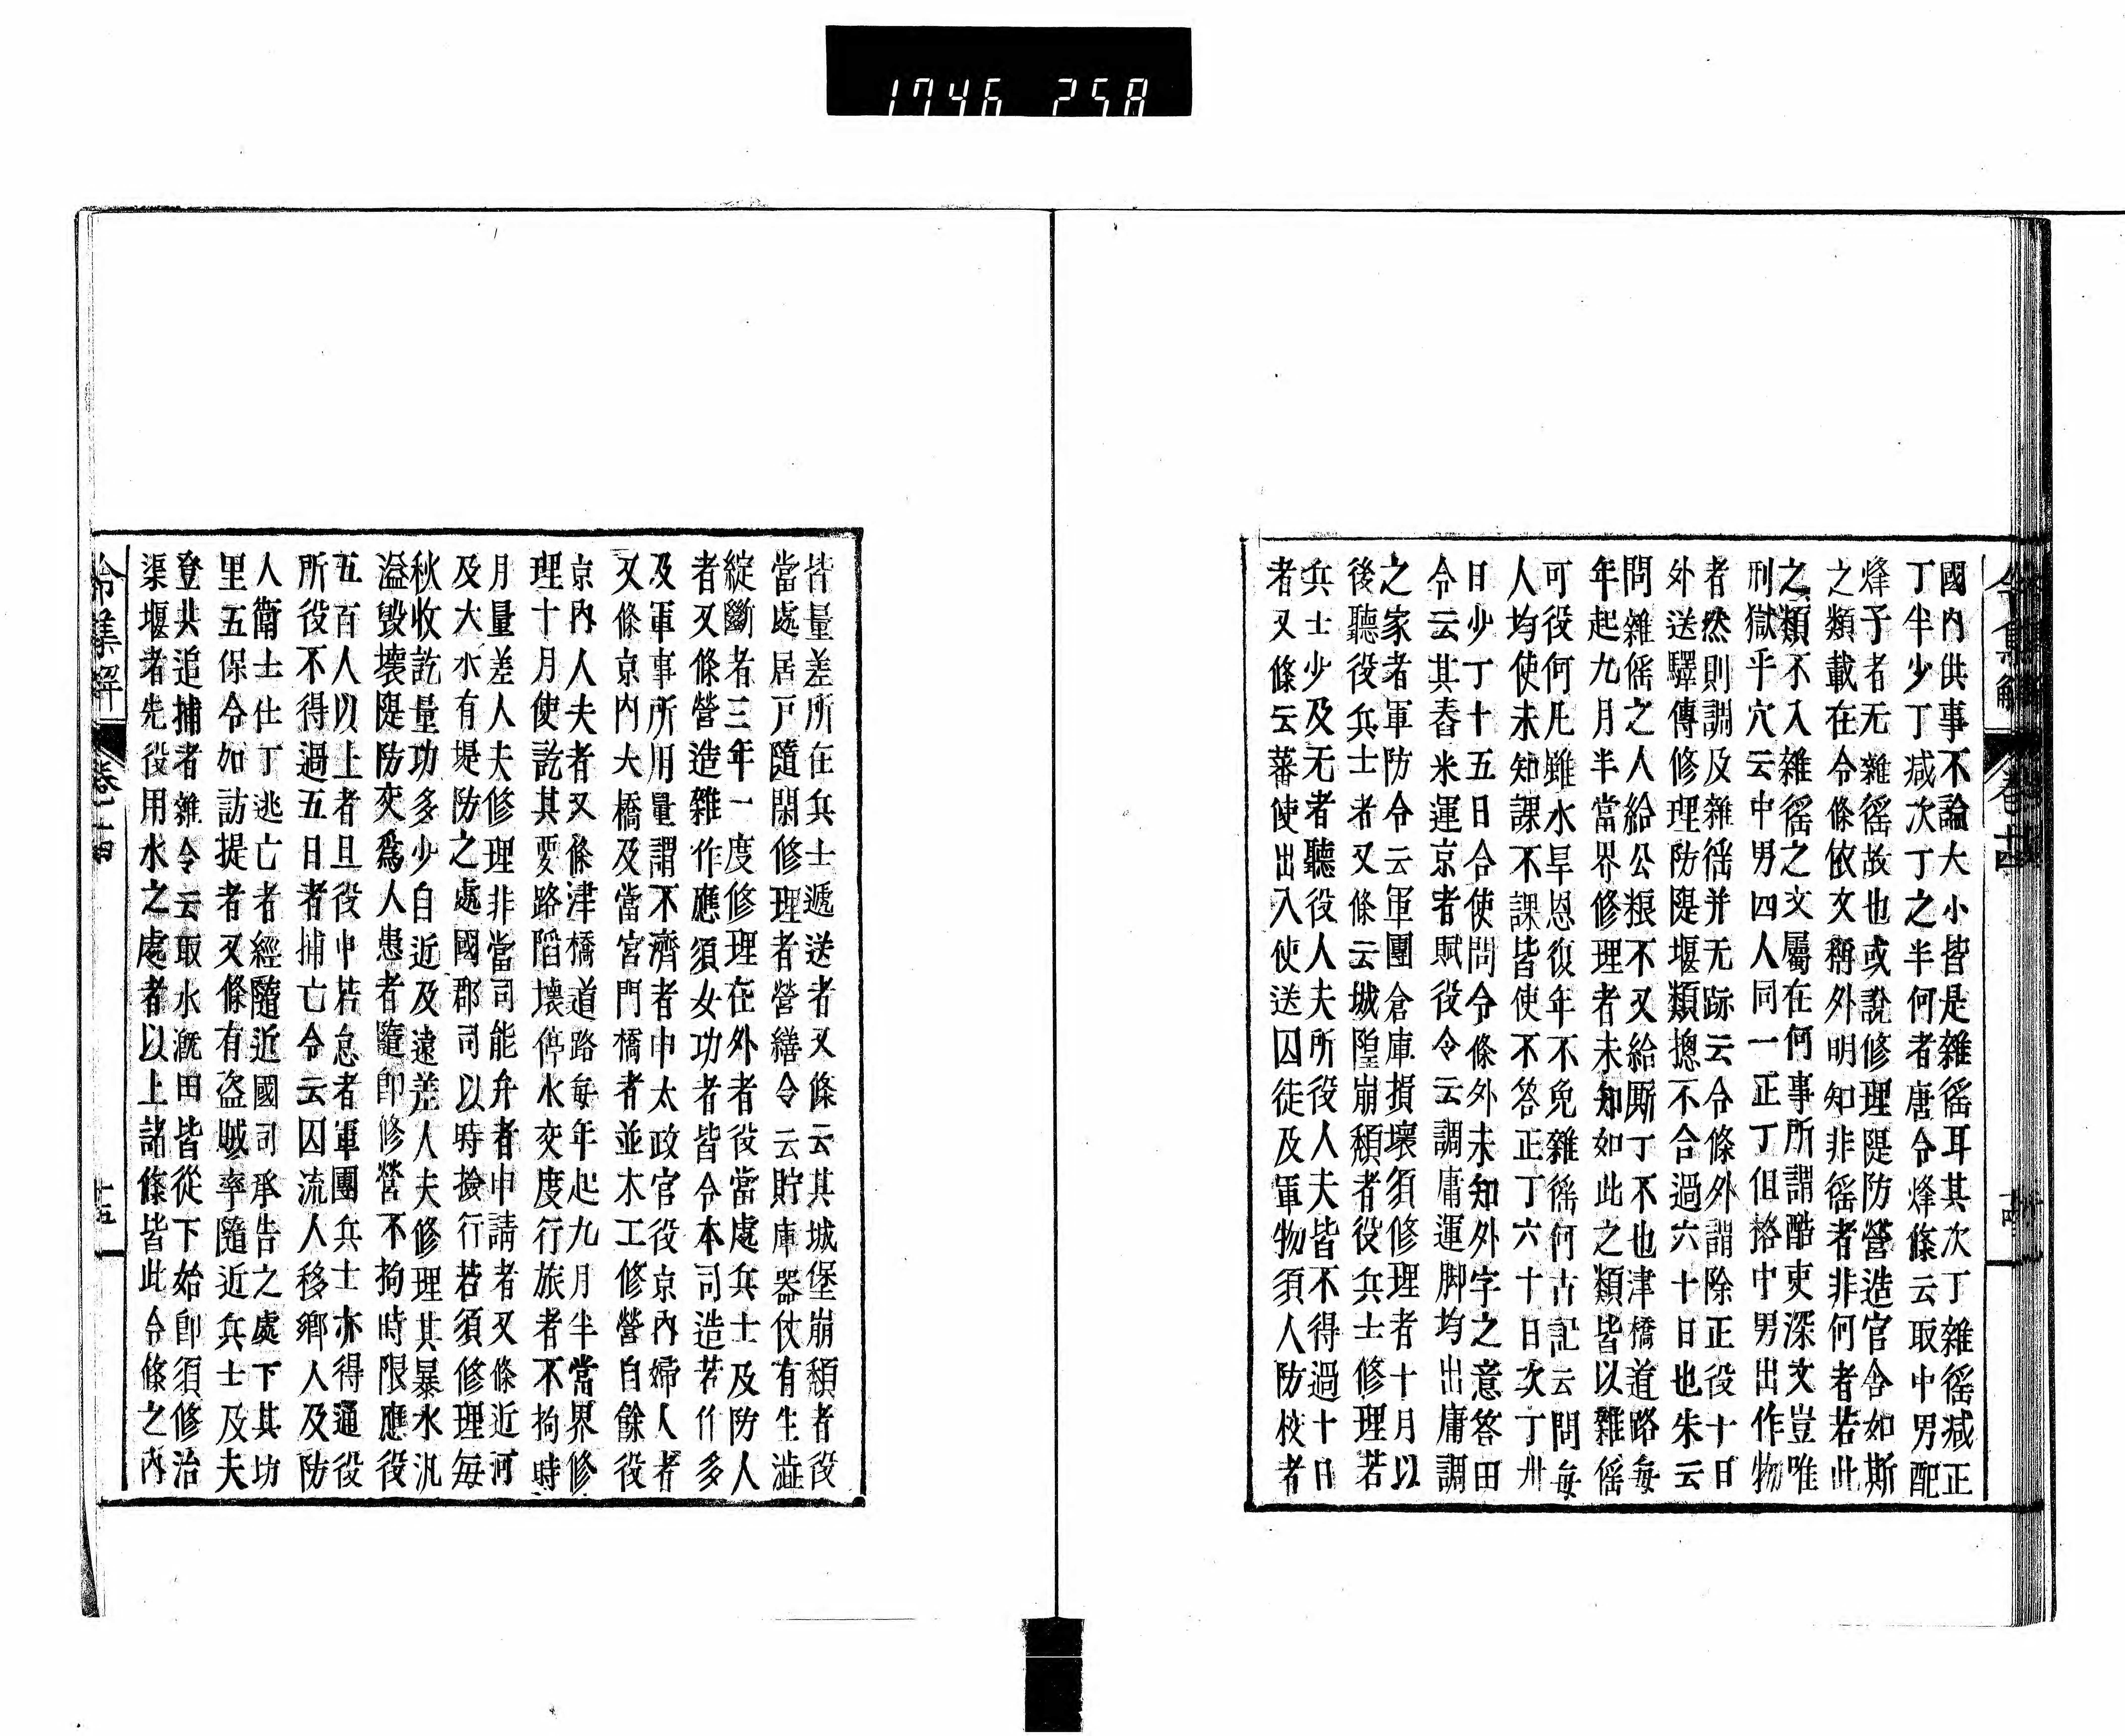 1746 258
令集解 卷十四 十四
國內供事不論大小皆是雜徭耳其次丁雜徭减正
丁半少丁减次丁之半何者唐令烽條云取中男配
烽子者无雜徭故也或說修理隄防營造官舍如斯
之類載在令條依文稱外明知非徭者非何者若此
之類不入雜徭之文屬在何事所謂酷吏深文豈唯
刑獄乎穴云中男四人同一正丁但格中男出作物
者然則調及雜徭并无跡云令條外謂除正役十日
外送驛傳修理防隄堰類揔不合過六十日也朱云
問雜徭之人給公粮不又給厮丁不也津橋道路每
年起九月半當界修理者未知如此之類皆以雜徭
可役何凡雖水旱恩復年不免雜徭何古記云問每
人均使未知課不課皆使不答正丁六十日次丁卅
日少丁十五日合使問令條外未知外字之意答田
令云其舂米運京者賦役令云調庸運脚均出庸調
之家者軍防令云軍團倉庫損壞須修理者十月以
後聽役兵士者又條云城隍崩頹者役兵士修理若
兵士少及无者聽役人夫所役人夫皆不得過十日
者又條云蕃使出入使送囚徒及軍物須人防校者
皆量差所在兵士遞送者又條云其城堡崩頹者役
當處居戶隨閑修理者營繕令云貯庫器仗有生澁
綻斷者三年一度修理在外者役當處兵士及防人
者又條營造雜作應須女功者皆令本司造若作多
及軍事所用量謂不濟者申太政官役京內婦人者
又條京內大橋及當宮門橋者並木工修營自餘役
京內人夫者又條津橋道路每年起九月半當界修
理十月使訖其要路陷壞停水交度行旅者不拘時
月量差人夫修理非當司能弁者申請者又條近河
及大水有堤防之處國郡司以時撿行若須修理每
秋收訖量功多少自近及遠差人夫修理其暴水汎
溢毀壞隄防交爲人患者隨卽修營不拘時限應役
五百人以上者且役且申若急者軍團兵士亦得通役
所役不得過五日者捕亡令云囚流人移鄉人及防
人衛士仕丁逃亡者經隨近國司承告之處下其坊
里五保令如訪捉者又條有盜賊率隨近兵士及夫
登共追捕者雜令云取水漑田皆從下始卽須修治
渠堰者先役用水之處者以上諸條皆此令條之內
令集解 卷十四 十五